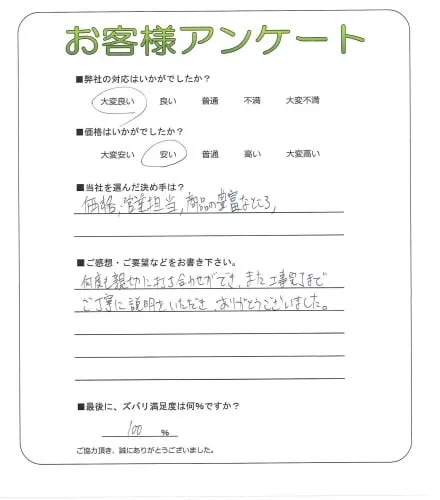 お客様アンケート
■弊社の対応はいかがでしたか?
大変良い 良い 普通 不満 大変不満
■価格はいかがでしたか?
大変安い 安い 普通 高い 大変高い
■当社を選んだ決め手は?
価格,営業担当,商品の豊富なところ,
■ご感想・ご要望などをお書き下さい。
何度も親切に打ち合わせができ、また工事完了まで
ご丁寧に説明をいただき、ありがとうございました。
■最後に、ズバリ満足度は何%ですか?
100 %
ご協力頂き、誠にありがとうございました。